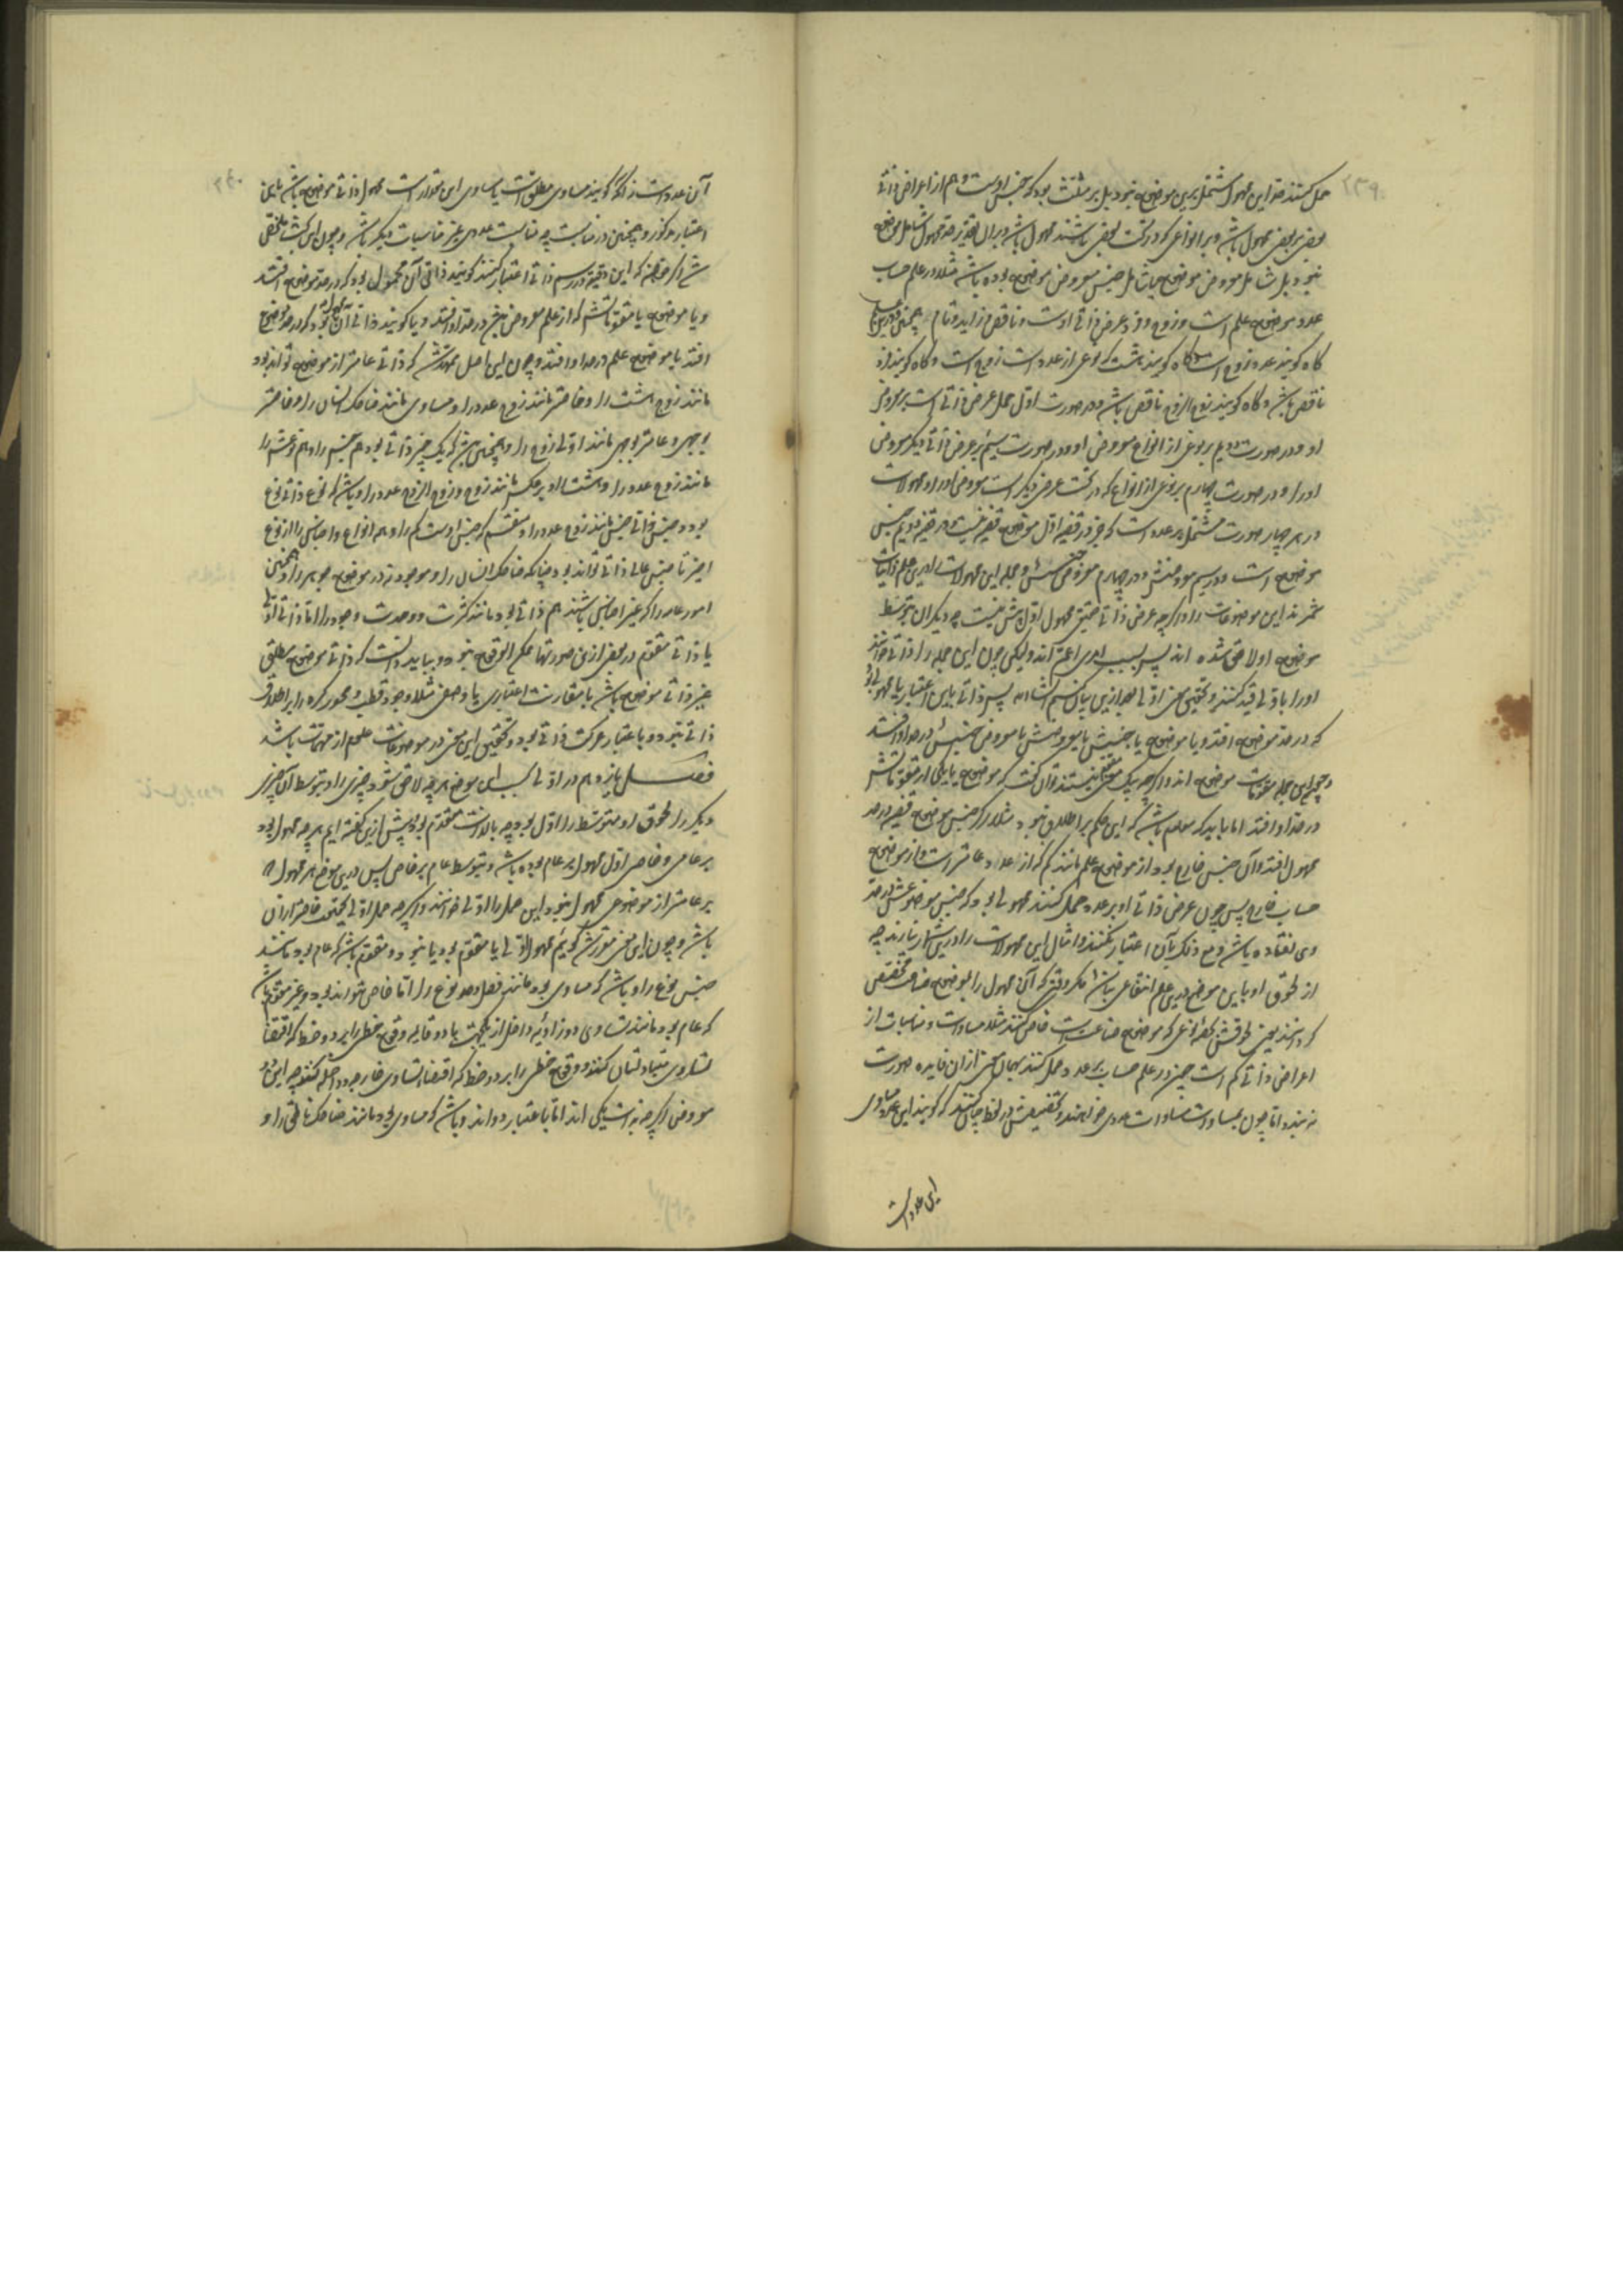 حمل کنند حد این محمول مشتمل برین موضوع نبود بل بر مثلث بود که جنس اوست و هم از اعراض ذاتی
بعضی بر بعضی محمول باشد و بر انواعی که در تحت بعضی باشند محمول باشد و بر آن تقدیر حد محمول شامل موضوع
نبود بل شامل معروض موضوع یا شامل جنس معروض موضوع بوده باشد مثلا در علم حساب
عدد موضوع علم است و زوج و فرد عرض ذاتی اوست و ناقص و زاید و تام همچنین
گاه گویند عدد زوج است و گاه گویند هشت که نوعی از عدد است زوج است و گاه گویند زوج
ناقص باشد و گاه گویند زوج الزوج ناقص باشد و در صورت اول حمل عرض ذاتی است بر معروض
او و در صورت دویم بر نوعی از انواع معروض او و در صورت سیم بر عرض ذاتی دیگر معروض
او را و در صورت چهارم بر نوعی از انواع که در تحت عرض دیگر است معروض او را و محمولات
در هر چهار صورت مشتمل بر عدد است که جز در قضیه اول موضوع قضیه نیست و در قضیه دویم جنس
موضوع است و در سیم معروضش و در چهارم معروض جنسش و جمله این محمولات را درین علم ذاتیات
شمرند این موضوعات را و اگر چه عرض ذاتی حقیقی محمول اول بیش نیست چه دیگران بتوسط
موضوع او لاحق شده اند پس بسبب امری اعم اند و لیکن چون این جمله را ذاتی خوانند
او را باولی قید کنند و تحقیق معنی اولی بعد ازین بیان کنیم انشاء الله پس ذاتی باین اعتبار یا محمولی بود
که در حد موضوع افتد و یا موضوع یا جنسش یا معروضش یا معروض جنسش در حد او افتد
و جمع این جمله مقومات موضوع اند و اگر چه بیک معنی نیستند توان گفت که موضوع یا یکی از مقوماتش
در حد او افتد اما باید که معلوم باشد که این حکم بر اطلاق نبود مثلا اگر جنس موضوع قضیه در حد
محمول افتد و آن جنس خارج بود از موضوع علم مانند کم که از عدد عامتر است و از موضوع
حساب خارج پس چون عرض ذاتی او بر عدد حمل کنند محمولی بود که جنس موضوعش در حد
وی افتاده باشد و مع ذلک بآن اعتبار نکنند و امثال این محمولات را درین شمار نیارند چه
از لحوق او باین موضع درین علم انتفاعی نباشد مگر وقتی که آن محمول را بموضوع صناعت تخصیص
کرده باشند یعنی لحوقش بنوعی که موضوع صناعت است خاص کنند مثلا مساوات و مناسبات از
اعراض ذاتی کم است چون در علم حساب بر عدد حمل کنند بهمان معنی ازان فایده صورت
نه بندد اما چون بمساوات مساوات عددی خواهند و تخصیصش در لفظ چنان باشد که گویند این عدد مساوی
این عدد است
آن عدد است زانکه گویند مساوی مطلق است یا مساوی این مقدار است محمول ذاتی موضوع باشد باین
اعتبار مذکور و همچنین در مناسبت چه مناسبت عددی غیر مناسبات دیگر باشد و چون این بحث محقق
شد اگر خواهند که این دقیقه در رسم ذاتی اعتبار کنند گویند ذاتی آن محمول بود که در حد موضوع افتد
و یا موضوع یا مقوماتش که از علم معروض خارج نبود در حد او افتد و یا گویند ذاتی آن محمول بود که در حد موضوع
افتد یا موضوع علم در حد او افتد و چون این اصل ممهد شد که ذاتی عامتر از موضوع تواند بود
مانند زوج هشت را و خاصتر مانند زوج عدد را و مساوی مانند ضاحک انسان را و خاصتر
بوجهی و عامتر بوجهی مانند اولی زوج را و همچنین باشد که یک چیز ذاتی بود هم جنس را و هم نوعش را
مانند زوج عدد را و هشت را و بر عکس مانند زوج و زوج الزوج عدد را و باشد که نوع ذاتی نوع
بود و جنس ذاتی جنس مانند زوج عدد را و منقسم که جنس اوست کم را و هم انواع و اجناس را از نوع
اخیر تا جنس عالی ذاتی تواند بود چنانکه ضاحک انسان را و موجود نه در موضوع جوهر را و همچنین
امور عامه را که غیر اجناس باشند هم ذاتی بود مانند کثرت و وحدت وجود را اما ذاتی اولی
یا ذاتی مقوم در بعضی ازین صورتها ممکن الوقوع نبود و بباید دانست که ذاتی موضوع مطلق
غیر ذاتی موضوع باشد با مقارنت اعتباری یا وصفی مثلا وجود قطب و محور کره را بر اطلاق
ذاتی نبود و باعتبار حرکت ذاتی بود و تحقیق این معنی در موضوعات علوم از مهمات باشد
فصل یازدهم در اولی
دیگر را لحوق او متوسط را اول بود چه بالذات متقدم بود و پیش ازین گفته ایم هر چه محمول بود
بر عامی و خاصی اول محمول بر عام بوده باشد و بتوسط عام بر خاص پس درین موضع هر محمول که
بر عامتر از موضوعی محمول نبود این حمل را اولی خوانند و اگر چه حمل اولی بحقیقت خاصتر ازان
باشد و چون این معنی مقرر شد گوییم محمول اولی یا مقوم بود یا نبود و مقوم باشد که عام بود مانند
جنس نوع را و باشد که مساوی بود مانند فصل و حد نوع را اما خاص نتواند بود و غیر مقوم باشد
که عام بود مانند تساوی دو زاویه داخل از یکجهت با دو قایمه وقوع خطی را بر دو خط که اقتضاء
تساوی متبادلتان کنند و وقوع خطی را بر دو خط که اقتضاء تساوی خارجه و داخله کنند چه این دو
معروض اگر چه بذات یکی اند اما باعتبار دو اند و باشد که مساوی بود مانند ضاحک ناطق را و